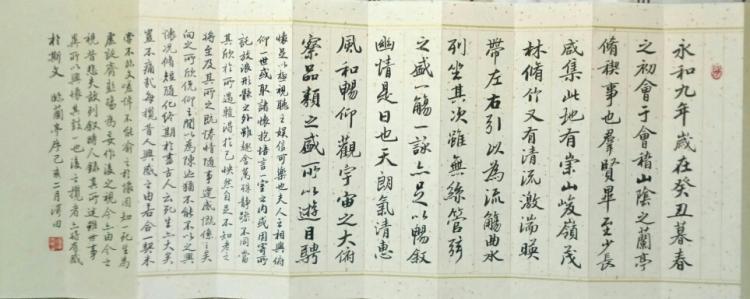 永和九年歲在癸丑暮春
之初會于會稽山陰之蘭亭
脩禊事也羣賢畢至少長
咸集此地有崇山峻嶺茂
林脩竹又有清流激湍暎
帶左右引以為流觴曲水
列坐其次雖無絲管弦
之盛一觴一詠亦足以暢叙
幽情是日也天朗氣清惠
風和暢仰觀宇宙之大俯
察品類之盛所以遊目騁
懷足以極視聽之娛信可樂也夫人之相與俯
仰一世或取諸懷抱悟言一室之內或因寄所
託放浪形骸之外雖趣舍萬殊靜躁不同當
其欣於所遇暫得於己快然自足不知老之
將至及其所之既惓情隨事遷感慨係之矣
向之所欣俛仰之間以為陳迹猶不能不以之興
懷況脩短隨化終期於盡古人云死生亦大矣
豈不痛哉每攬昔人興感之由若合一契未
嘗不臨文嗟悼不能喻之於懷固知一死生為
虛誕齊彭殤為妄作後之視今亦由今之
視昔悲夫故列叙時人錄其所述雖世事
異所以興懷其致一也後之攬者亦將有感
於斯文 臨蘭亭序己亥二月